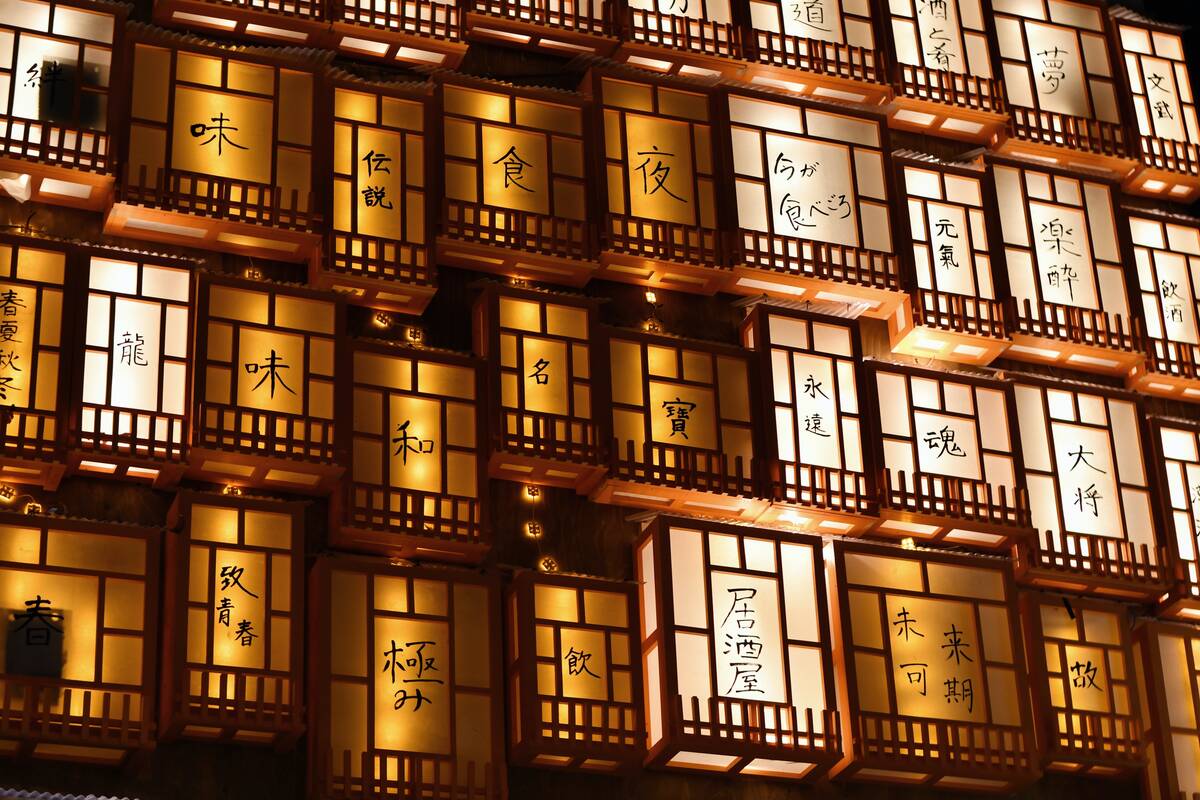 道
酒と肴
夢
文武
絆
味
伝説
食
夜
今が
食べごろ
元氣
楽酔
飲酒
春夏秋冬
龍
味
和
名
寶
永遠
魂
大将
春
致青春
極み
飲
居酒屋
未来
可期
故